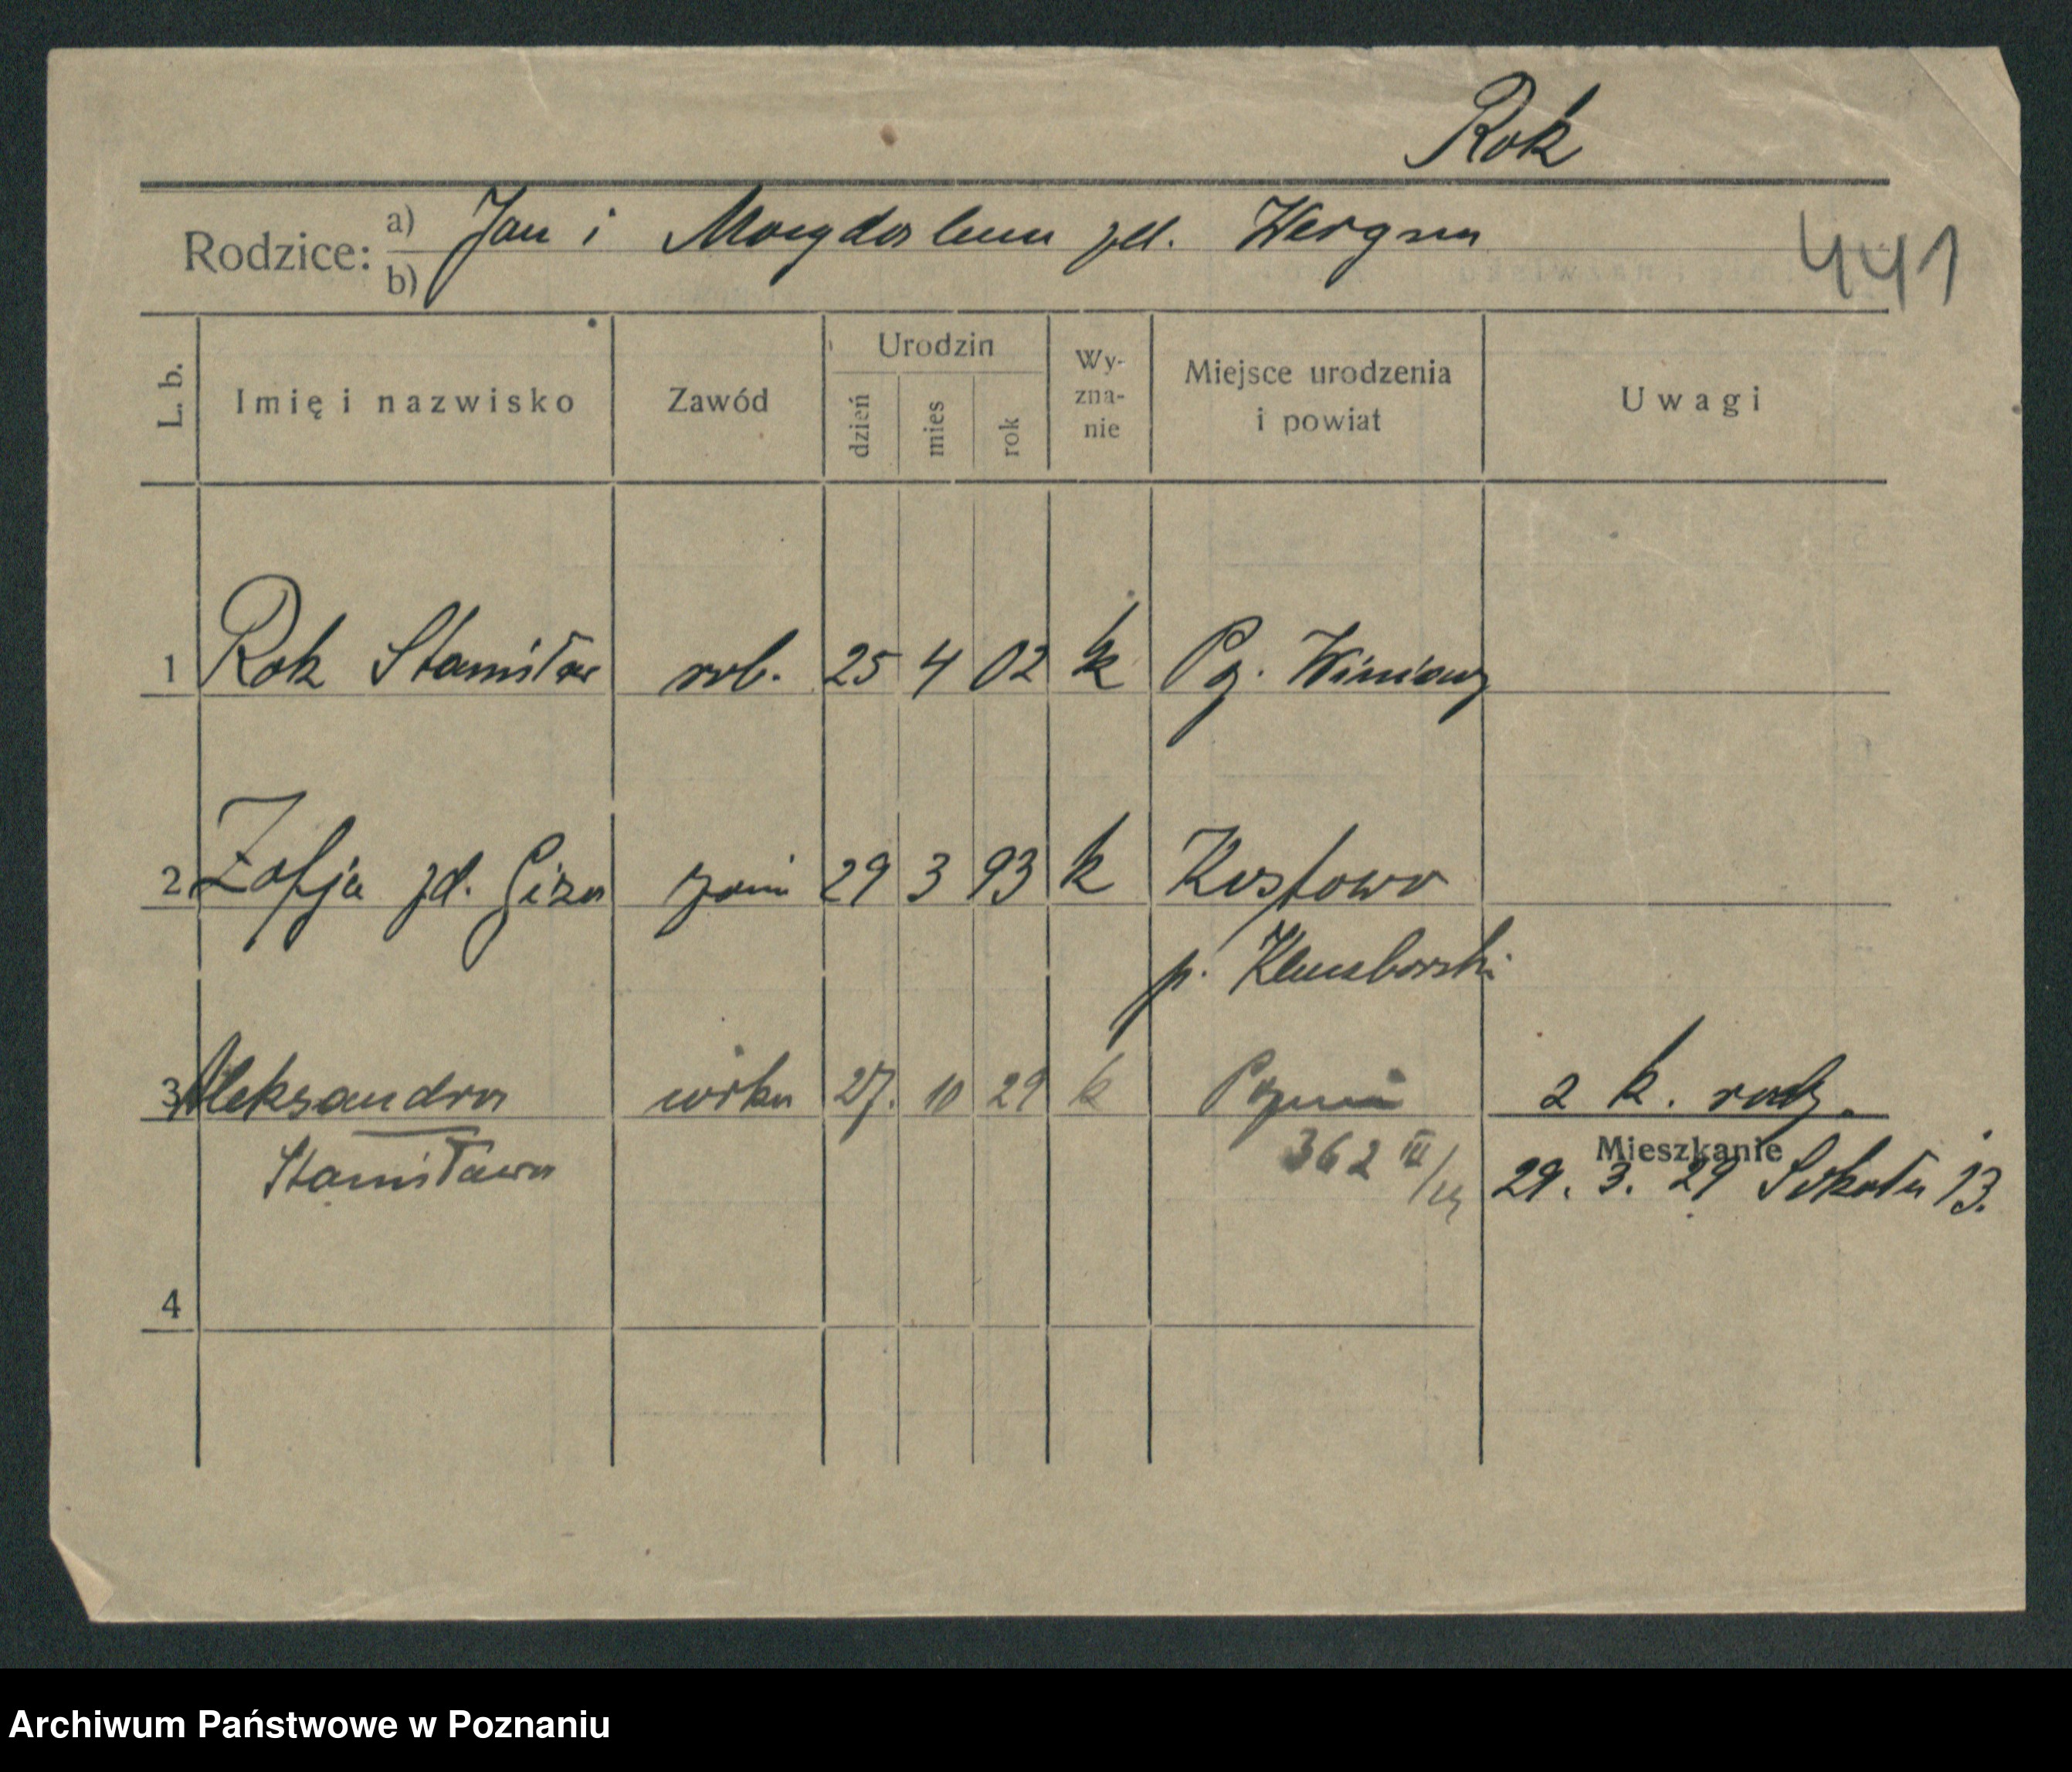 Rok
Rodzice: a) Jan i Magdalena zd. Wergna
b)
441
L. b.
Imię i nazwisko
Zawód
Urodzin
dzień
mies
rok
Wy-
zna-
nie
Miejsce urodzenia
i powiat
Uwagi
1 Rok Stanisław rob. 25 4 02 k Pozn. Winiary
2 Zofja zd. Giza żona 29 3 93 k Kostowo
p. Kluczborski
3 Aleksandra córka 27. 10 29 k 2 k. rodz.
Stanisława 362 III/29
Mieszkanie
29. 3. 29 Sokoła 13.
4
Archiwum Państwowe w Poznaniu